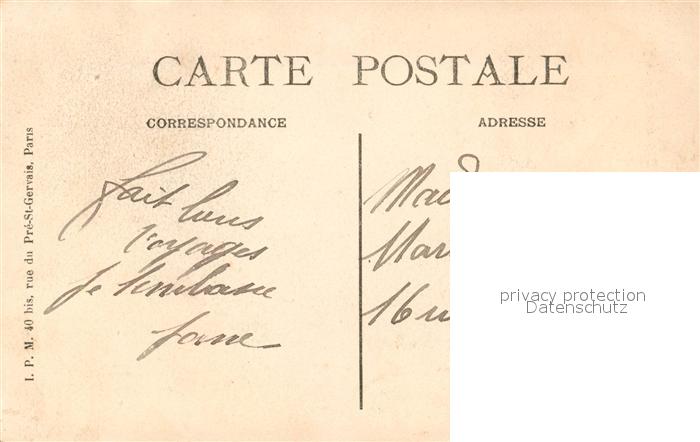 CARTE POSTALE
CORRESPONDANCE
ADRESSE
I. P. M. 40 bis, rue du Pré-St-Gervais, Paris
fait bons
voyages
Je t'embrasse
Mad
Mar
16 ru
privacy protection
Datenschutz